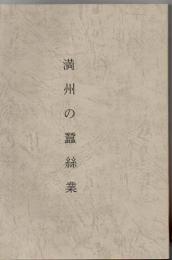 満州の蠶絲業